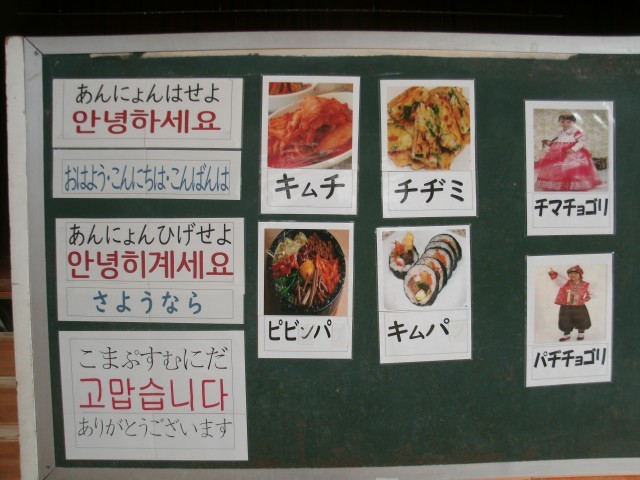 あんにょんはせよ
안녕하세요
おはよう・こんにちは・こんばんは
あんにょんひげせよ
안녕히계세요
さようなら
こまぷすむにだ
고맙습니다
ありがとうございます
キムチ
チヂミ
ピビンパ
キムパ
チマチョゴリ
パチチョゴリ